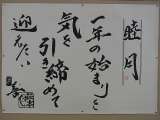 睦月
一年の始まりを
気を
引き締めて
迎えたい